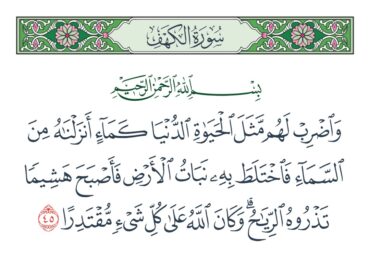 سُورَةُ الكَهْفِ
بِسْمِ اللَّهِ الرَّحْمَٰنِ الرَّحِيمِ
وَاضْرِبْ لَهُم مَّثَلَ الْحَيَوٰةِ الدُّنْيَا كَمَآءٍ أَنزَلْنَٰهُ مِنَ
السَّمَآءِ فَاخْتَلَطَ بِهِۦ نَبَاتُ الْأَرْضِ فَأَصْبَحَ هَشِيمًا
تَذْرُوهُ الرِّيَٰحُ ۗ وَكَانَ اللَّهُ عَلَىٰ كُلِّ شَىْءٍ مُّقْتَدِرًا ٤٥